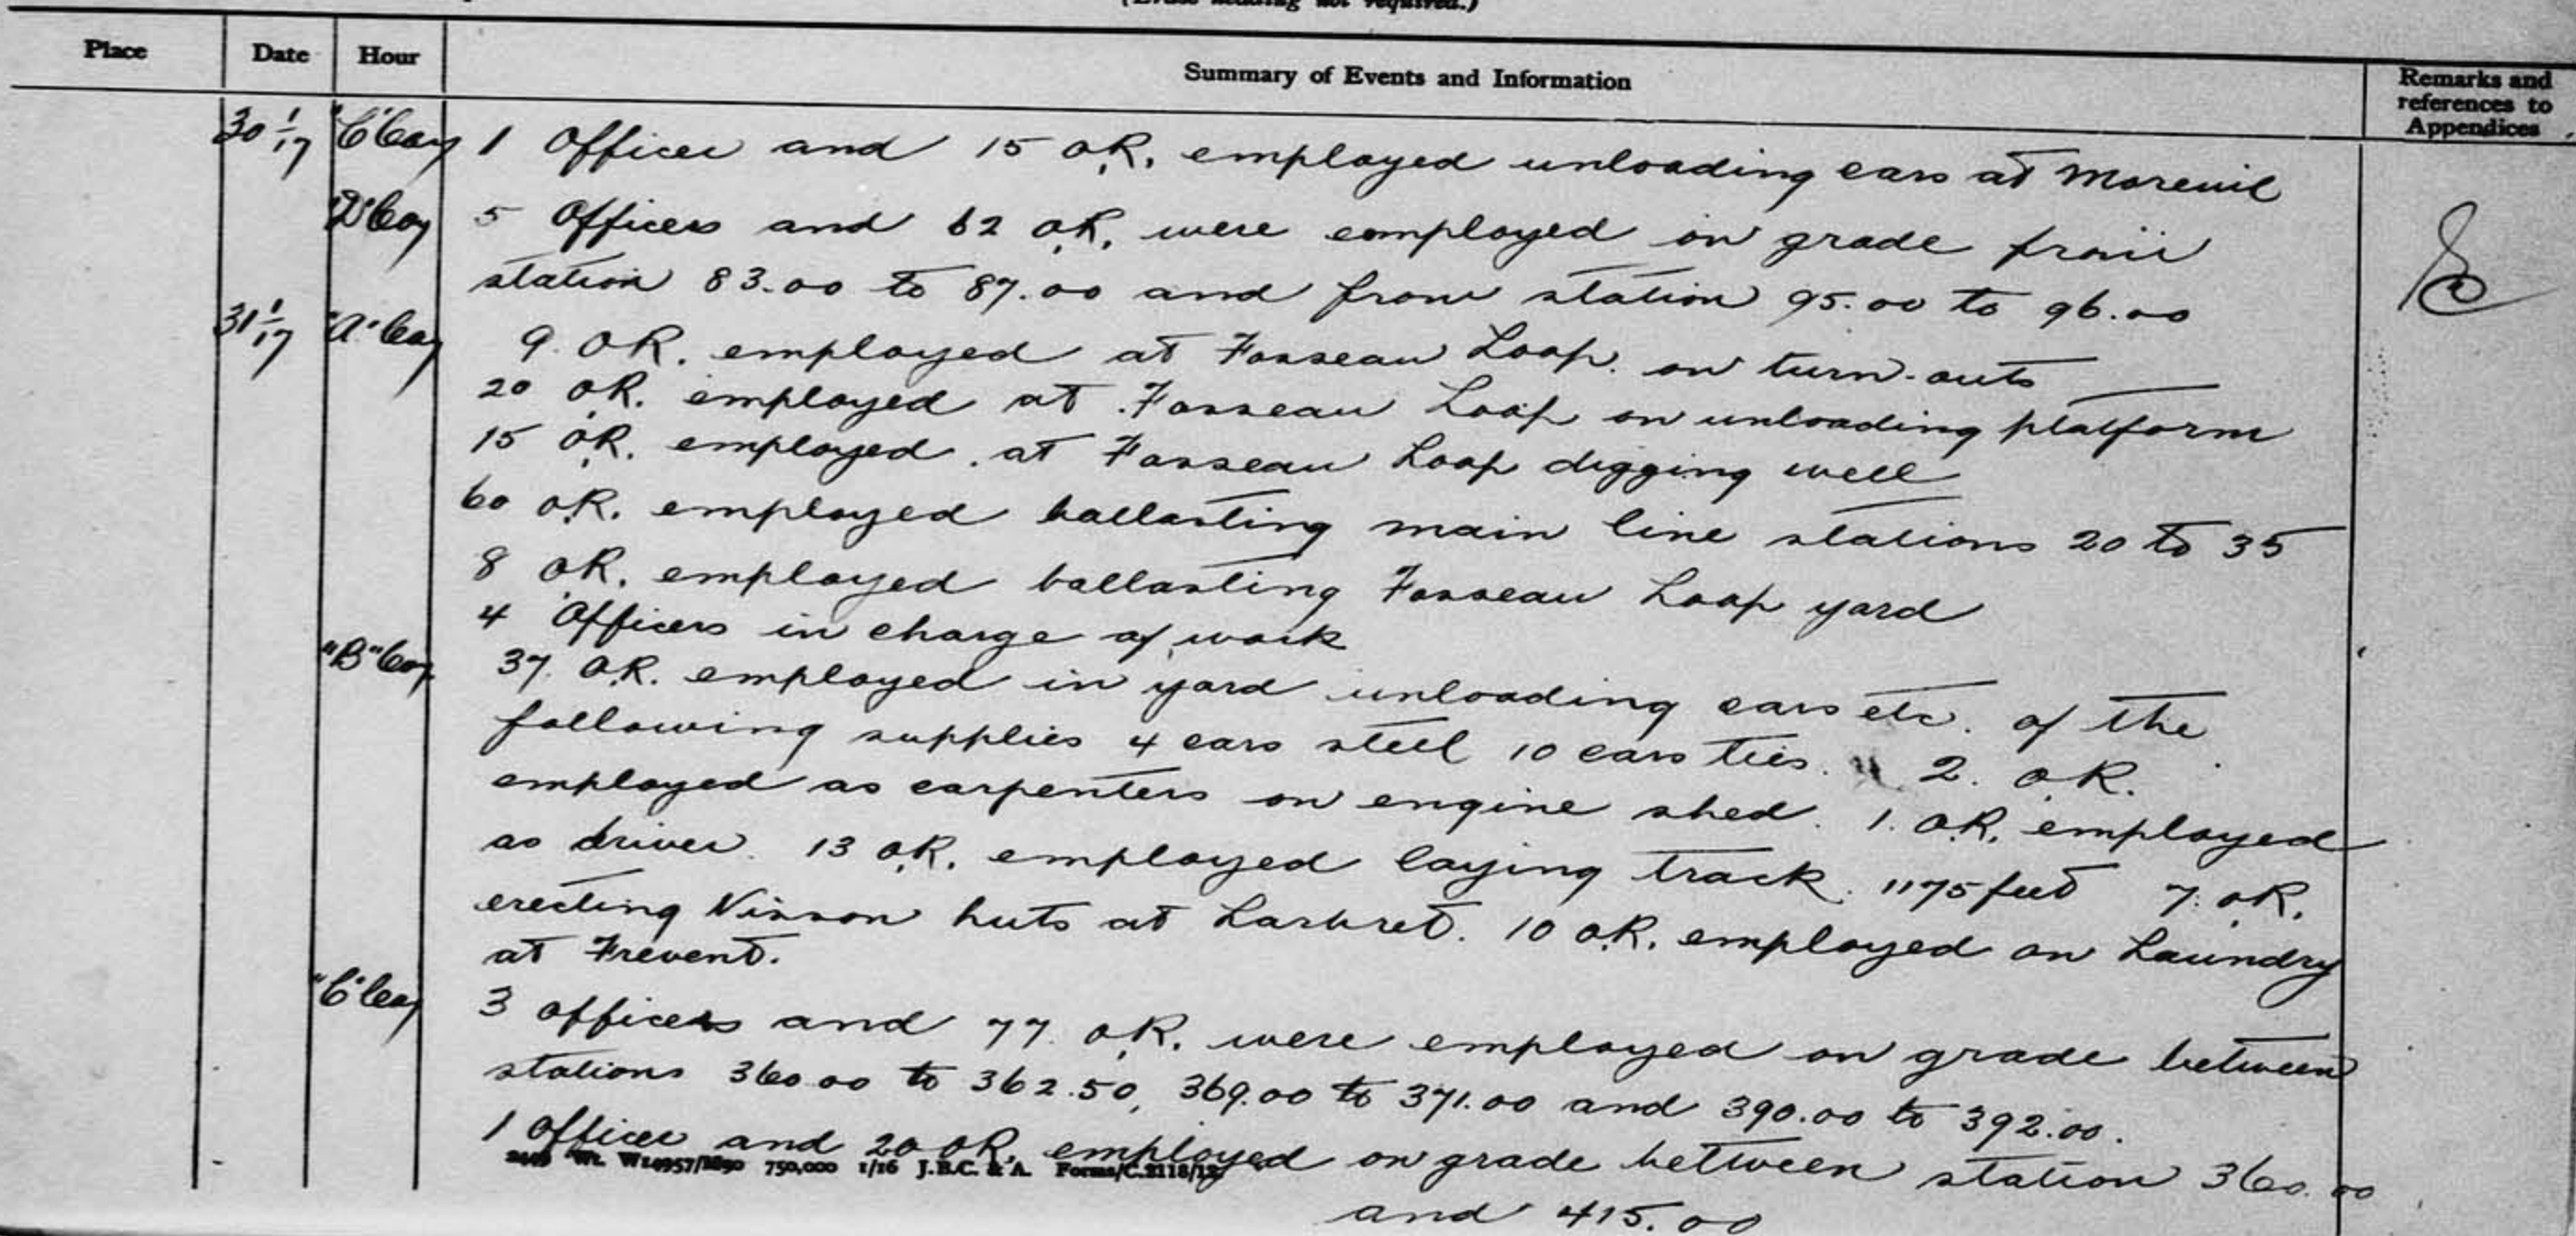 (Erase heading not required.)
Place Date Hour Summary of Events and Information Remarks and references to Appendices
30 1/17 "C" Coy 1 Officer and 15 O.R. employed unloading cars at Moreuil
"D" Coy 5 Officers and 62 O.R. were employed on grade from
station 83.00 to 87.00 and from station 95.00 to 96.00
31 1/17 "A" Coy 9 O.R. employed at Fosseau Loop on turn-outs
20 O.R. employed at Fosseau Loop on unloading platform
15 O.R. employed at Fosseau Loop digging well
60 O.R. employed ballasting main line stations 20 to 35
8 O.R. employed ballasting Fosseau Loop yard
4 Officers in charge of work
"B" Coy. 37 O.R. employed in yard unloading cars etc. of the
following supplies 4 cars steel 10 cars ties. 2. O.R.
employed as carpenters on engine shed. 1. O.R. employed
as driver. 13 O.R. employed laying track. 1175 feet 7. O.R.
erecting Nisson huts at Larbret. 10 O.R. employed on Laundry
at Frevent.
"C" Coy 3 officers and 77 O.R. were employed on grade between
stations 360.00 to 362.50, 369.00 to 371.00 and 390.00 to 392.00.
1 Officer and 20 O.R. employed on grade between station 360.00
2449 Wt. W14957/M90 750,000 1/16 J.B.C. & A. Forms/C.2118/12.
and 415.00